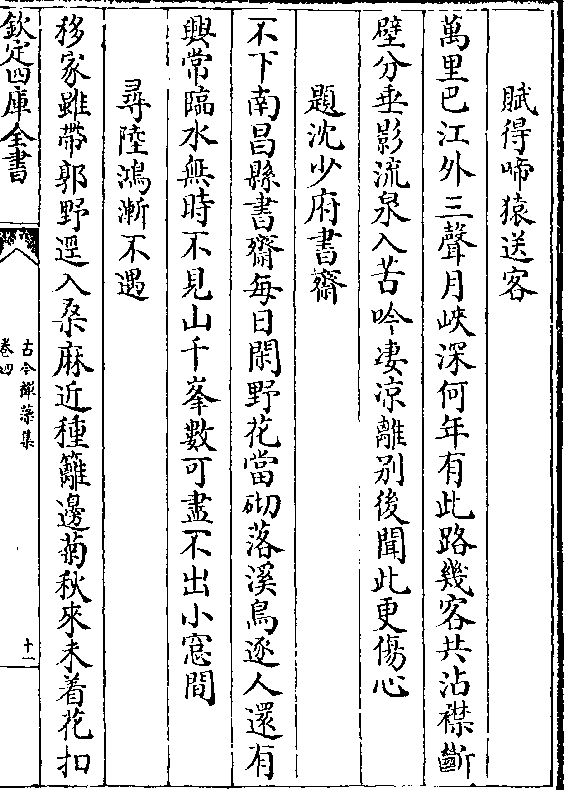 賦得啼猿送客
萬里巴江外三聲月峽深何年有此路幾客共沾襟斷
壁分垂影流泉入苦吟凄涼離别後聞此更傷心
題沈少府書齋
不下南昌縣書齋每日閑野花當砌落溪鳥逐人還有
興常臨水無時不見山千峯數可盡不出小窓間
尋陸鴻漸不遇
移家雖帶郭野逕入桑麻近種籬邊菊秋來未着花扣
欽定四庫全書
古今禪藻集
卷四
十一